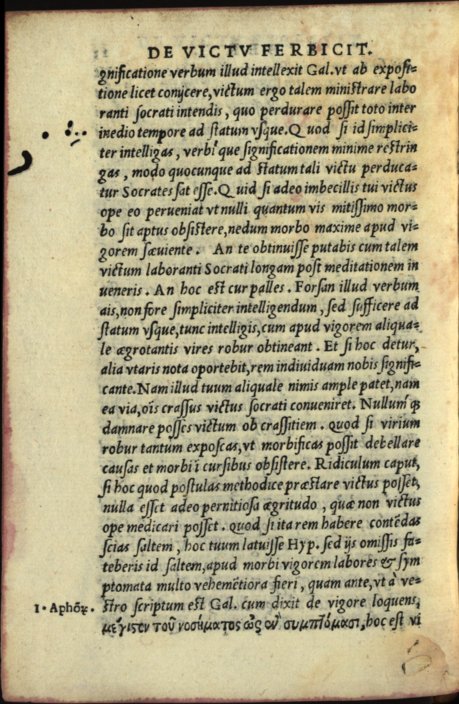 DE VICTV FERBICIT.
gnificatione verbum illud intellexit Gal. vt ab exposi-
tione licet conijcere, victum ergo talem ministrare labo
ranti socrati intendis, quo perdurare possit toto inter
inedio tempore ad statum vsque. Quod si id simplici-
ter intelligas, verbi que significationem minime restrin
gas, modo quocunque ad statum tali victu perduca-
tur Socrates sat esse. Quid si adeo imbecillis tui victus
ope eo perueniat vt nulli quantum vis mitissimo mor-
bo sit aptus obsistere, nedum morbo maxime apud vi-
gorem sæuiente. An te obtinuisse putabis cum talem
victum laboranti Socrati longam post meditationem in
ueneris. An hoc est cur palles. Forsan illud verbum
ais, non fore simpliciter intelligendum, sed sufficere ad
statum vsque, tunc intelligis, cum apud vigorem aliqua-
le ægrotantis vires robur obtineant. Et si hoc detur,
alia vtaris nota oportebit, rem indiuiduam nobis signifi-
cante. Nam illud tuum aliquale nimis ample patet, nam
ea via, oīs crassus victus socrati conueniret. Nullum q3
damnare posses victum ob crassitiem. quod si virium
robur tantum exposcas, vt morbificas possit debellare
causas et morbi i cursibus obsistere. Ridiculum caput,
si hoc quod postulas methodice præstare victus posset,
nulla esset adeo pernitiosa ægritudo, quæ non victus
ope medicari posset. quod si ita rem habere contēdas
scias saltem, hoc tuum latuisse Hyp. sed ijs omissis fa-
teberis id saltem, apud morbi vigorem labores & sym
ptomata multo vehemētiora fieri, quam ante, vt a ve-
1. Aphoꝝ. stro scriptum est Gal. cum dixit de vigore loquens,
μέγιστον τοῦ νοσήματος ὡς ἐν συμπτόμασι, hoc est vi